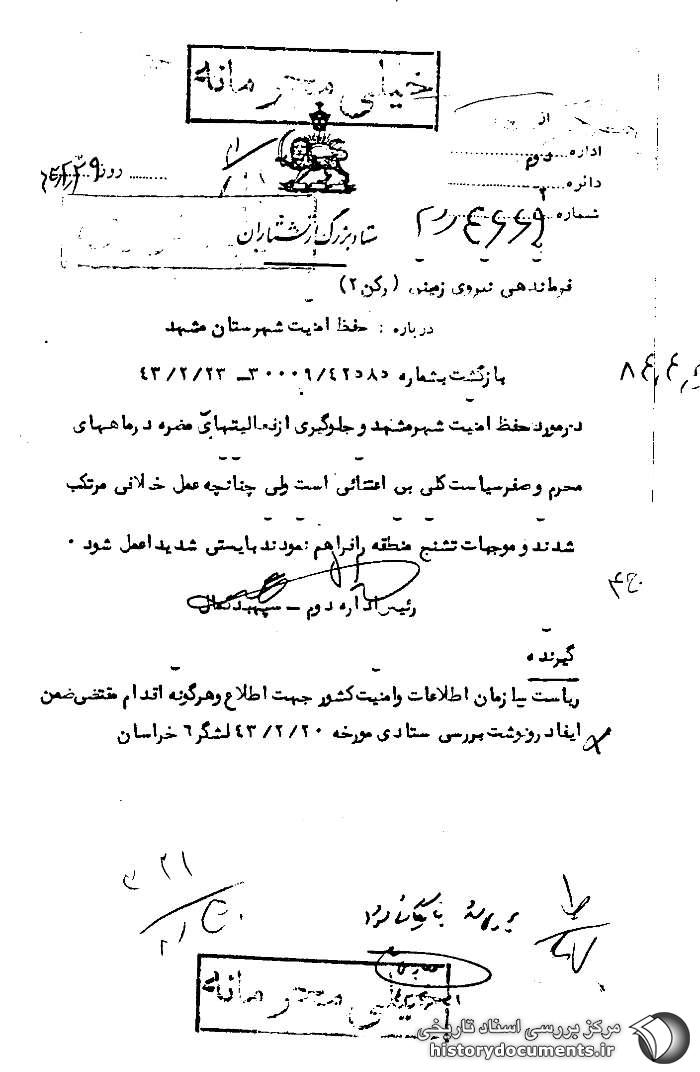 خیلی محرمانه
از
اداره دوم
دائره ۲
شماره
روز
ستاد بزرگ ارتشتاران
فرماندهی نیروی زمینی (رکن ۲)
درباره : حفظ امنیت شهرستان مشهد
بازگشت بشماره ۳۰۰۰۹/۴۲۵۸۵ــ ۴۳/۲/۲۳
درمورد حفظ امنیت شهر مشهد و جلوگیری ازفعالیتهای مضره درماههای
محرم و صفر سیاست کلی بی اعتنائی است ولی چنانچه عمل خلافی مرتکب
شدند و موجبات تشنج منطقه رافراهم نمودند بایستی شدید اعمل شود .
رئیس اداره دوم ــ سپهبد کمال
گیرنده
ریاست سازمان اطلاعات وامنیت کشور جهت اطلاع وهرگونه اقدام مقتضی ضمن
ایفاد رونوشت بررسی ستادی مورخه ۴۳/۲/۲۰ لشگر ۶ خراسان
خیلی محرمانه
مرکز بررسی اسناد تاریخی
historydocuments.ir